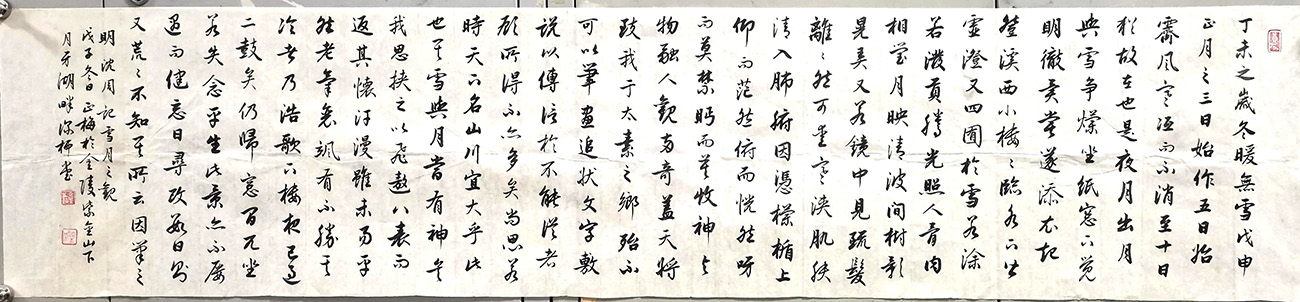 丁未之歲冬暖無雪戊申
正月之三日始作五日始
霽風寒冱而不消至十日
猶故在也是夜月出月
與雪爭爛坐紙窗下覺
明徹異常遂添衣起
登溪西小樓々臨水下皆
虛澄又四圍於雪若塗
若潑騰光照人骨肉
相瑩月映清波間樹影
晃弄又若鏡中見疏髮
離々然可愛寒浹肌膚
清入肺腑因憑欄楯上
仰而茫然俯而恍然呀
而莫禁眄而莫收神與
物融人觀兩奇蓋天將
致我于太素之鄉殆不
可以筆畫追狀文字敷
說以傳信於不能從者
顧所得不亦多矣尚思若
時天下名山川宜大乎此
也其雪與月當有神矣
我思挾之以飛遨八表而
返其懷汗漫雖未易平
然老氣衰颯有不勝其
冷者乃浩歌下樓夜已過
二鼓矣仍歸窗間兀坐
若失念平生此景亦不屢
遇而健忘日尋改數日則
又荒々不知其所云因筆之
明沈周記雪月之觀
戊子冬日正梅於金陵紫金山下
月牙湖畔深柳堂